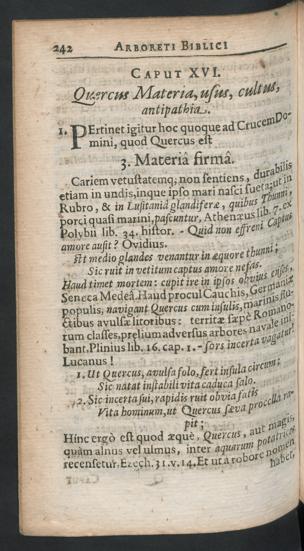 242 ARBORETI BIBLICI
CAPUT XVI.
Quercus Materia, usus, cultus,
antipathia.
1. PErtinet igitur hoc quoque ad Crucem Do-
mini, quod Quercus est
3. Materiâ firmâ.
Cariem vetustatemq; non sentiens, durabilis
etiam in undis, inque ipso mari nasci sueta; ut in
Rubro, & in Lusitaniâ glandiferæ, quibus Thunni,
porci quasi marini, pascuntur, Athenæus lib. 7. ex
Polybii lib. 34. histor. - Quid non effreni Captus
amore ausit? Ovidius.
Et medio glandes venantur in æquore thunni;
Sic ruit in vetitum captus amore nefas.
Haud timet mortem: cupit ire in ipsos obvius enses,
Seneca Medeâ. Haud procul Cauchis, Germaniæ
populis, navigant Quercus cum insulis, marinis flu-
ctibus avulsæ litoribus: territæ sæpè Romano-
rum classes, prelium adversus arbores navale ini-
bant. Plinius lib. 16. cap. 1. - sors incerta vagatur,
Lucanus!
1. Ut Quercus, avulsa solo, fert insula circum;
Sic natat instabili vita caduca salo.
2. Sic incerta sui, rapidis ruit obvia fatis
Vita hominum, ut Quercus sæva procella ra-
pit;
Hinc ergò est quod æquè, Quercus, aut magis,
quàm alnus vel ulmus, inter aquarum potatrices
recensetur. Ezech. 31. v. 14. Et ut à robore nomen
habet,